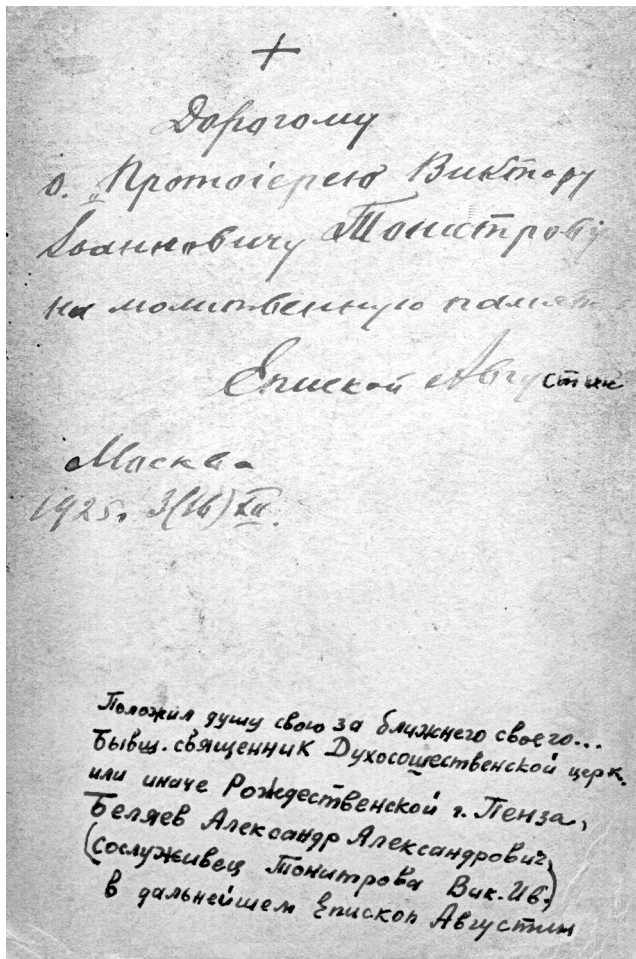 Дорогому
о. Протоіерею Виктору
Іоанновичу Тонитрову
на молитвенную память
Епископ Августин
Москва
1925 г. 3(16) XII.
Положил душу свою за ближнего своего...
Бывш. священник Духосошественской церк.
или иначе Рождественской г. Пенза,
Беляев Александр Александрович,
(сослуживец Тонитрова Вик. Ив.)
в дальнейшем Епископ Августин